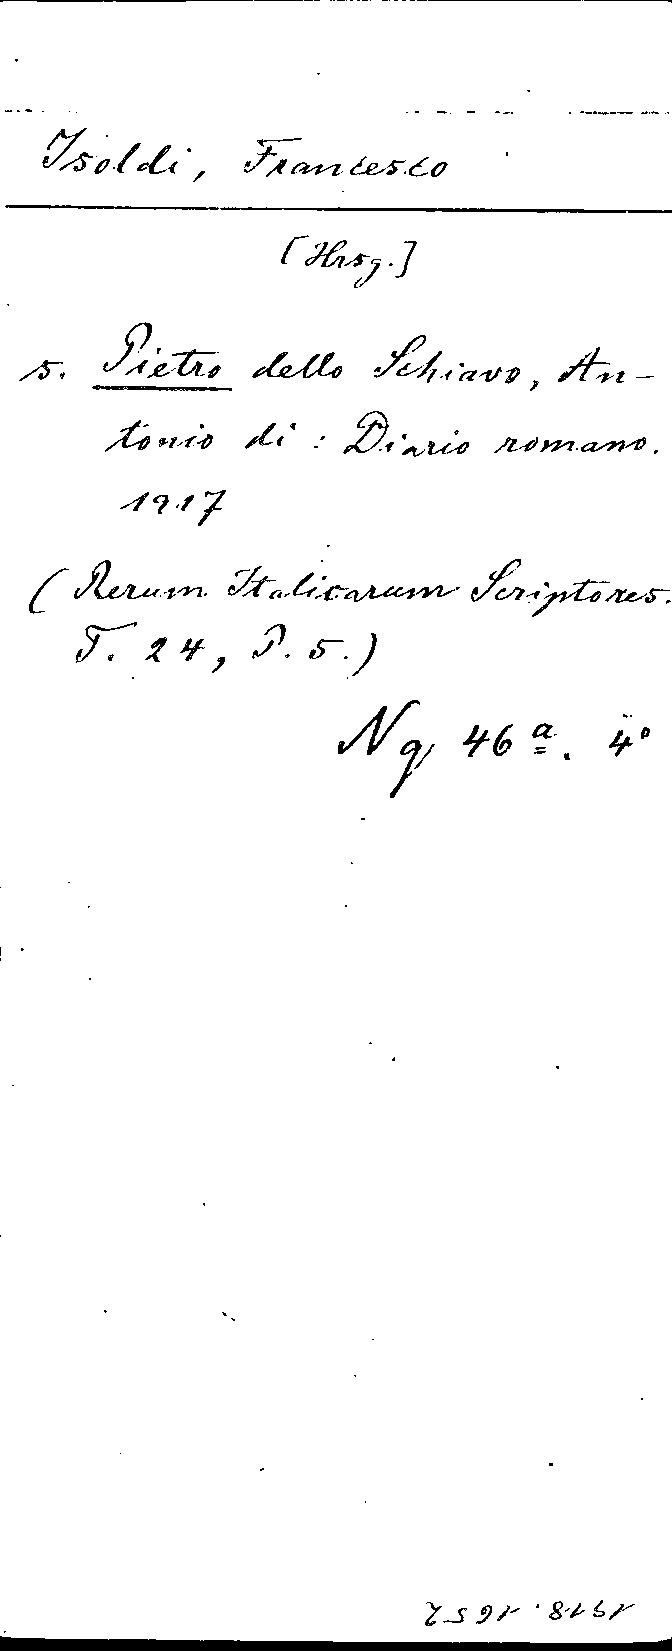 Isoldi, Francesco
[Hrsg.]
s. Pietro dello Schiavo, An-
tonio di: Diario romano.
1917
(Rerum Italicarum Scriptores.
T. 24, P. 5.)
Nq 46 a. 4°
1918.1652